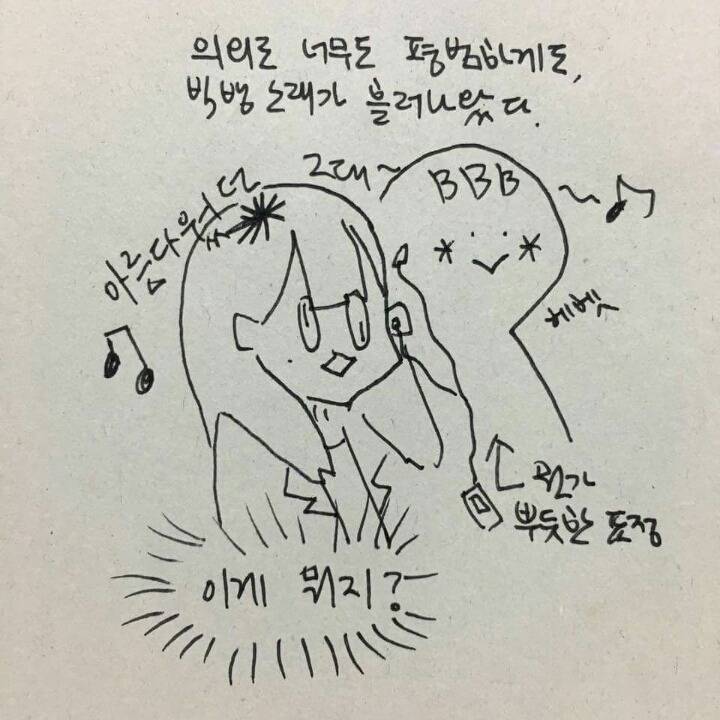 의외로 너무도 평범하게도,
빅뱅 노래가 흘러나왔다.
그대~
BBB
아름다워더
헤벳
뭔가
뿌듯한 표정
이게 뭐지?